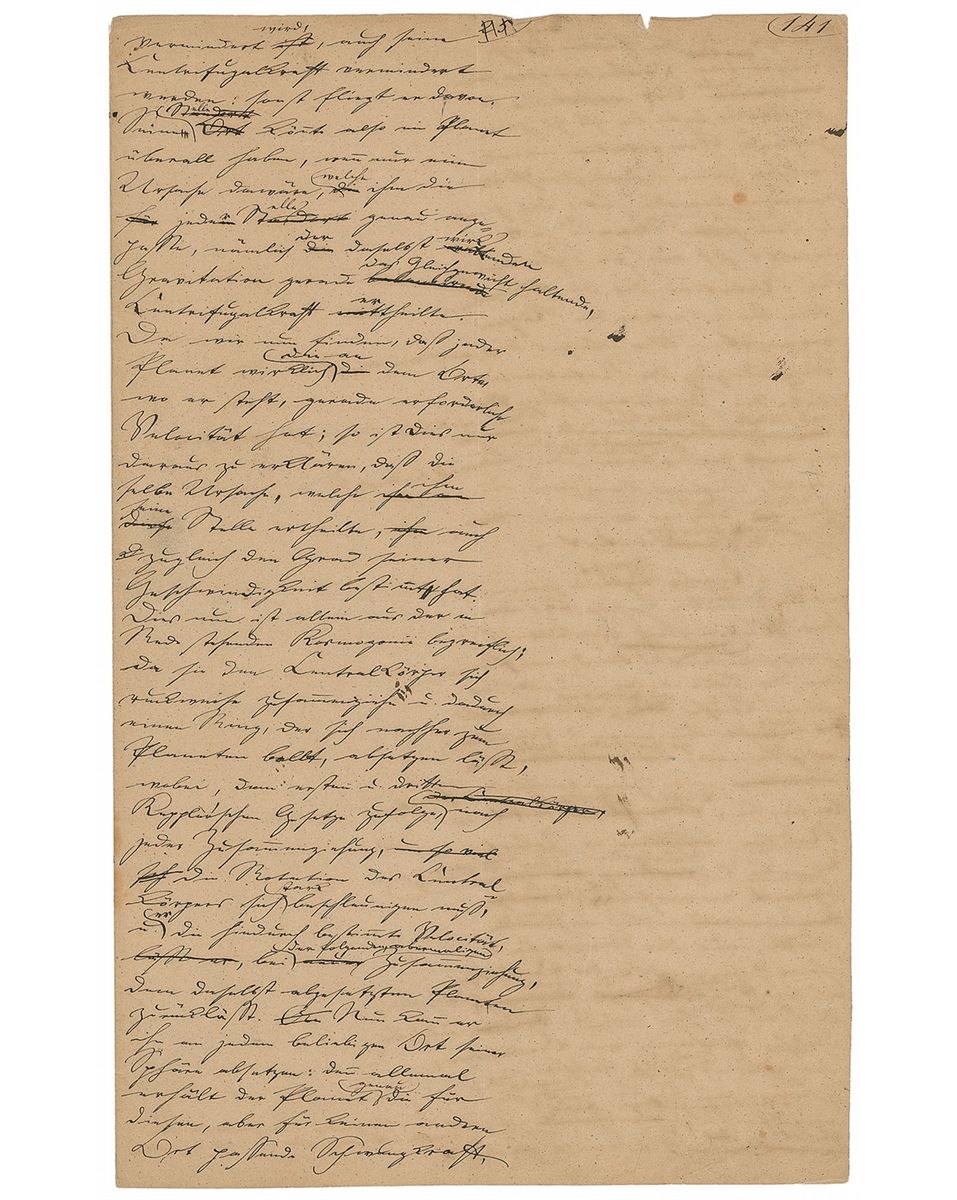 141
wird,
vermindert ist, auch seine
Centrifugalkraft vermindert
werden: sonst fliegt er davon.
Stelle
Seinen Ort könnte also ein Planet
überall haben, wenn nur eine
welche
Ursache dawäre, die ihm die
elle
für jeden Standort genau ange-
der wirkenden
passte, nämlich die daselbst
das Gleichgewicht haltende,
Gravitation gerade
er
Centrifugalkraft mittheilte.
Da wir nun finden, daß jeder
die an
Planet wirklich die dem Orte,
wo er steht, gerade erforderliche
Velocität hat; so ist Dies nur
daraus zu erklären, daß die
ihm
selbe Ursache, welche ihm
seine
diese Stelle ertheilte, ihm auch
zugleich den Grad seiner
Geschwindigkeit bestimmt hat.
Dies nun ist allein aus der in
Rede stehenden Kosmogonie begreiflich;
da sie den Centralkörper sich
ruckweise zusammenziehn u. dadurch
einen Ring, der sich nachher zum
Planeten ballt, absetzen läßt,
wobei, dem ersten u. dritten
des Centralkörpers,
Kepplerschen Gesetze zufolge, nach
jeder Zusammenziehung, um so viel
die Rotation des Central-
stark
körpers sich beschleunigen muß,
er
u. die hiedurch bestimmte Velocität,
der folgenden abermaligen
läßt er, bei einer Zusammenziehung,
dem daselbst abgesetzten Planeten
zurückläßt. Nun kann er
ihn an jedem beliebigen Ort seiner
Sphäre absetzen: denn allemal
genau
erhält der Planet die für
diesen, aber für keinen andern
Ort passende Schwungkraft,